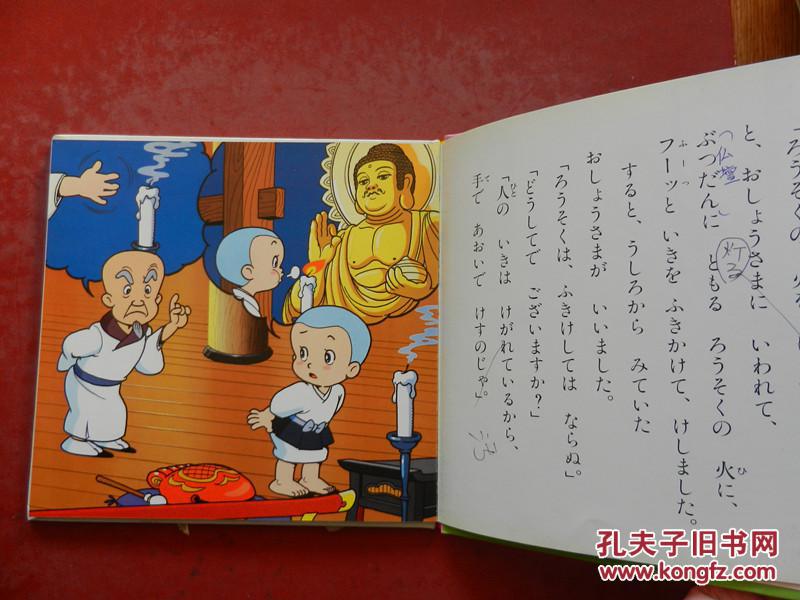 「ろうそくの
と、おしょうさまに いわれて、
ぶつだんに ともる ろうそくの 火に、
ひ
（仏壇）
灯る
フーッと いきを ふきかけて、けしました。
ふーっ
すると、うしろから みていた
おしょうさまが いいました。
「ろうそくは、ふきけしては ならぬ。」
「どうしてで ございますか？」
「人の いきは けがれているから、
ひと
手で あおいで けすのじゃ。」
て
孔夫子旧书网
www.kongfz.com